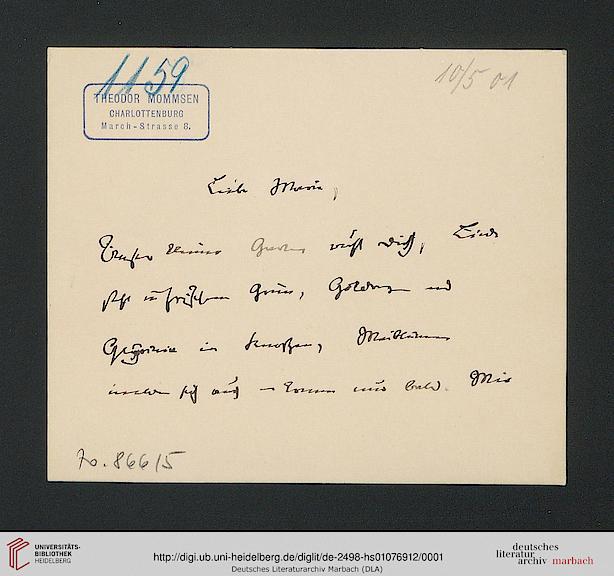 1159
10/5 01
THEODOR MOMMSEN
CHARLOTTENBURG
March-Strasse 8.
Liebe Marie,
Unser kleiner Garten ruft Dich, Linde
steht in frischem Grün, Goldregen und
in Knospen, Maiblumen
melden sich auch – komm nur bald. Mir
70.866/5
UNIVERSITÄTS-
BIBLIOTHEK
HEIDELBERG
http://digi.ub.uni-heidelberg.de/diglit/de-2498-hs01076912/0001
Deutsches Literaturarchiv Marbach (DLA)
deutsches
literatur
archiv marbach